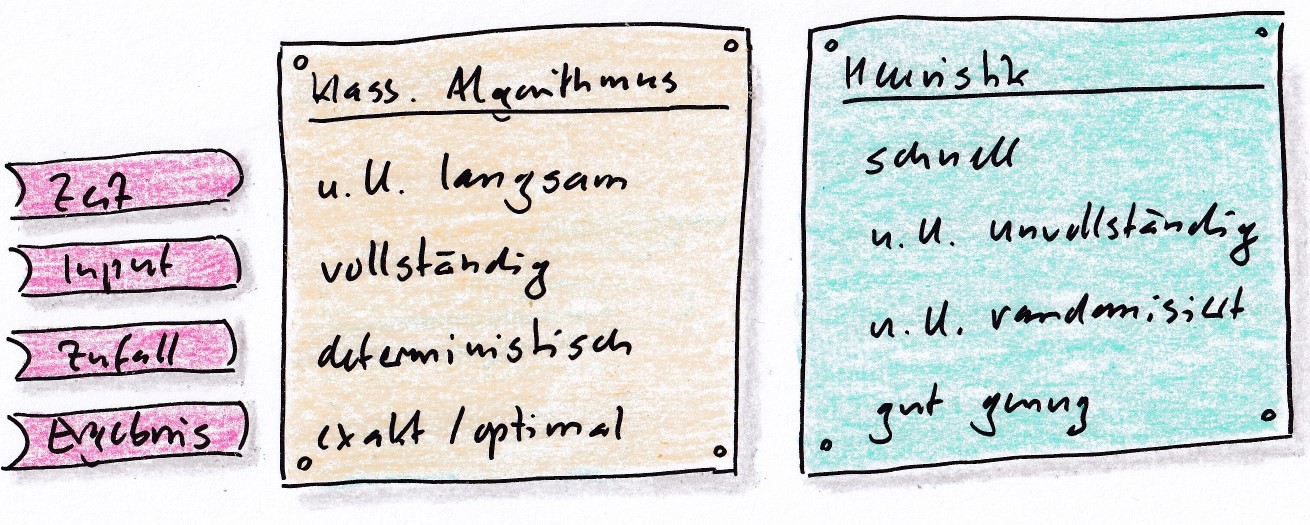 Klass. Algorithmus
Heuristik
Zeit
u. U. langsam
schnell
Input
vollständig
u. U. unvollständig
Zufall
deterministisch
u. U. randomisiert
Ergebnis
exakt / optimal
gut genug